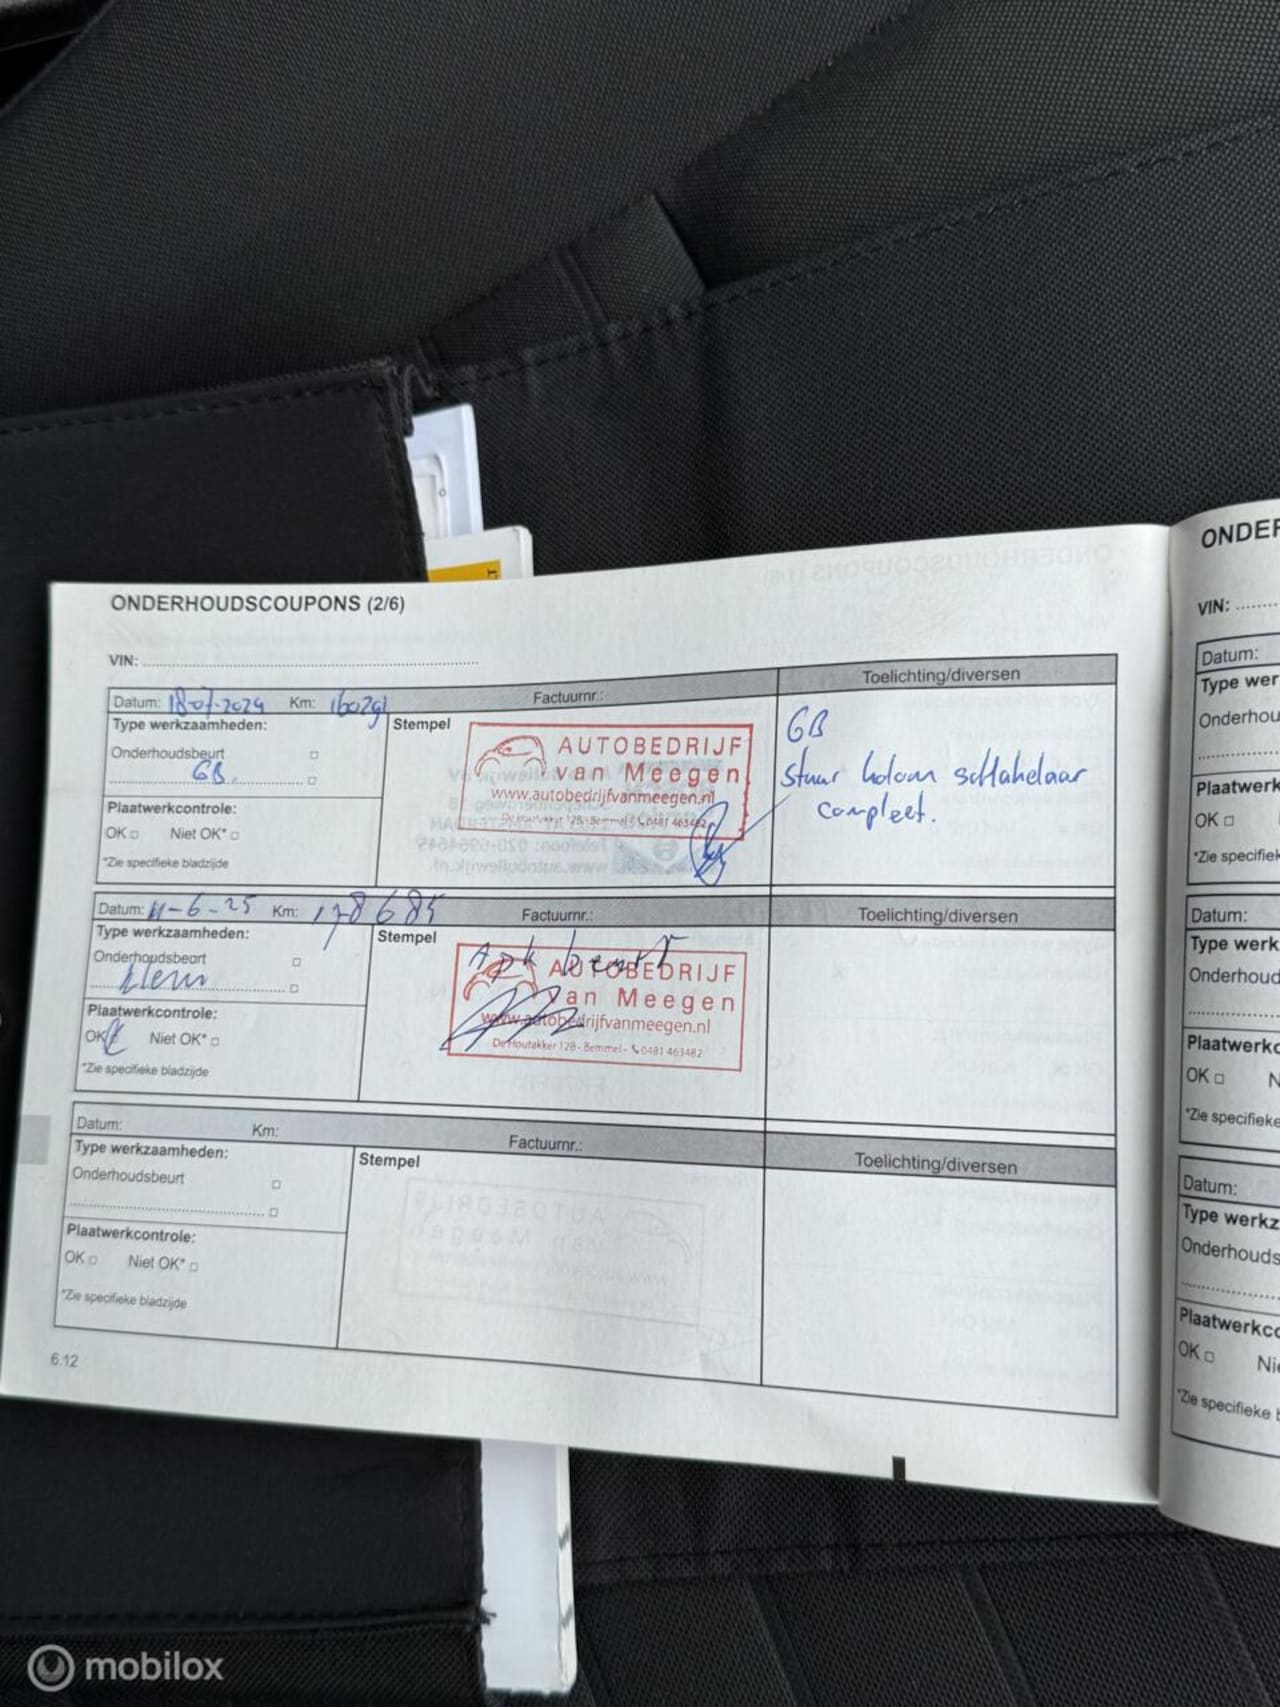 ONDERHOUDSCOUPONS (2/6)
VIN:
Toelichting/diversen
Datum: 18-07-2024 Km: 160291 Factuurnr.:
Type werkzaamheden:
Stempel
Onderhoudsbeurt
GB.
Plaatwerkcontrole:
OK Niet OK*
*Zie specifieke bladzijde
AUTOBEDRIJF
van Meegen
www.autobedrijfvanmeegen.nl
De Houtakker 128 - Bemmel - 0481 463482
GB
Stuur kolom schakelaar
compleet.
Datum: 11-6-25 Km: 178685 Factuurnr.:
Toelichting/diversen
Type werkzaamheden:
Stempel
Onderhoudsbeurt
klein
Plaatwerkcontrole:
OK Niet OK*
*Zie specifieke bladzijde
Apk beurt
AUTOBEDRIJF
van Meegen
www.autobedrijfvanmeegen.nl
De Houtakker 128 - Bemmel - 0481 463482
Datum: Km: Factuurnr.:
Toelichting/diversen
Type werkzaamheden:
Stempel
Onderhoudsbeurt
Plaatwerkcontrole:
OK Niet OK*
*Zie specifieke bladzijde
6.12
ONDER
VIN:
Datum:
Type wer
Onderhou
Plaatwerk
OK
*Zie specifiek
Datum:
Type werk
Onderhoud
Plaatwerkc
OK N
*Zie specifieke
Datum:
Type werkz
Onderhouds
Plaatwerkco
OK Nie
*Zie specifieke b
mobilox